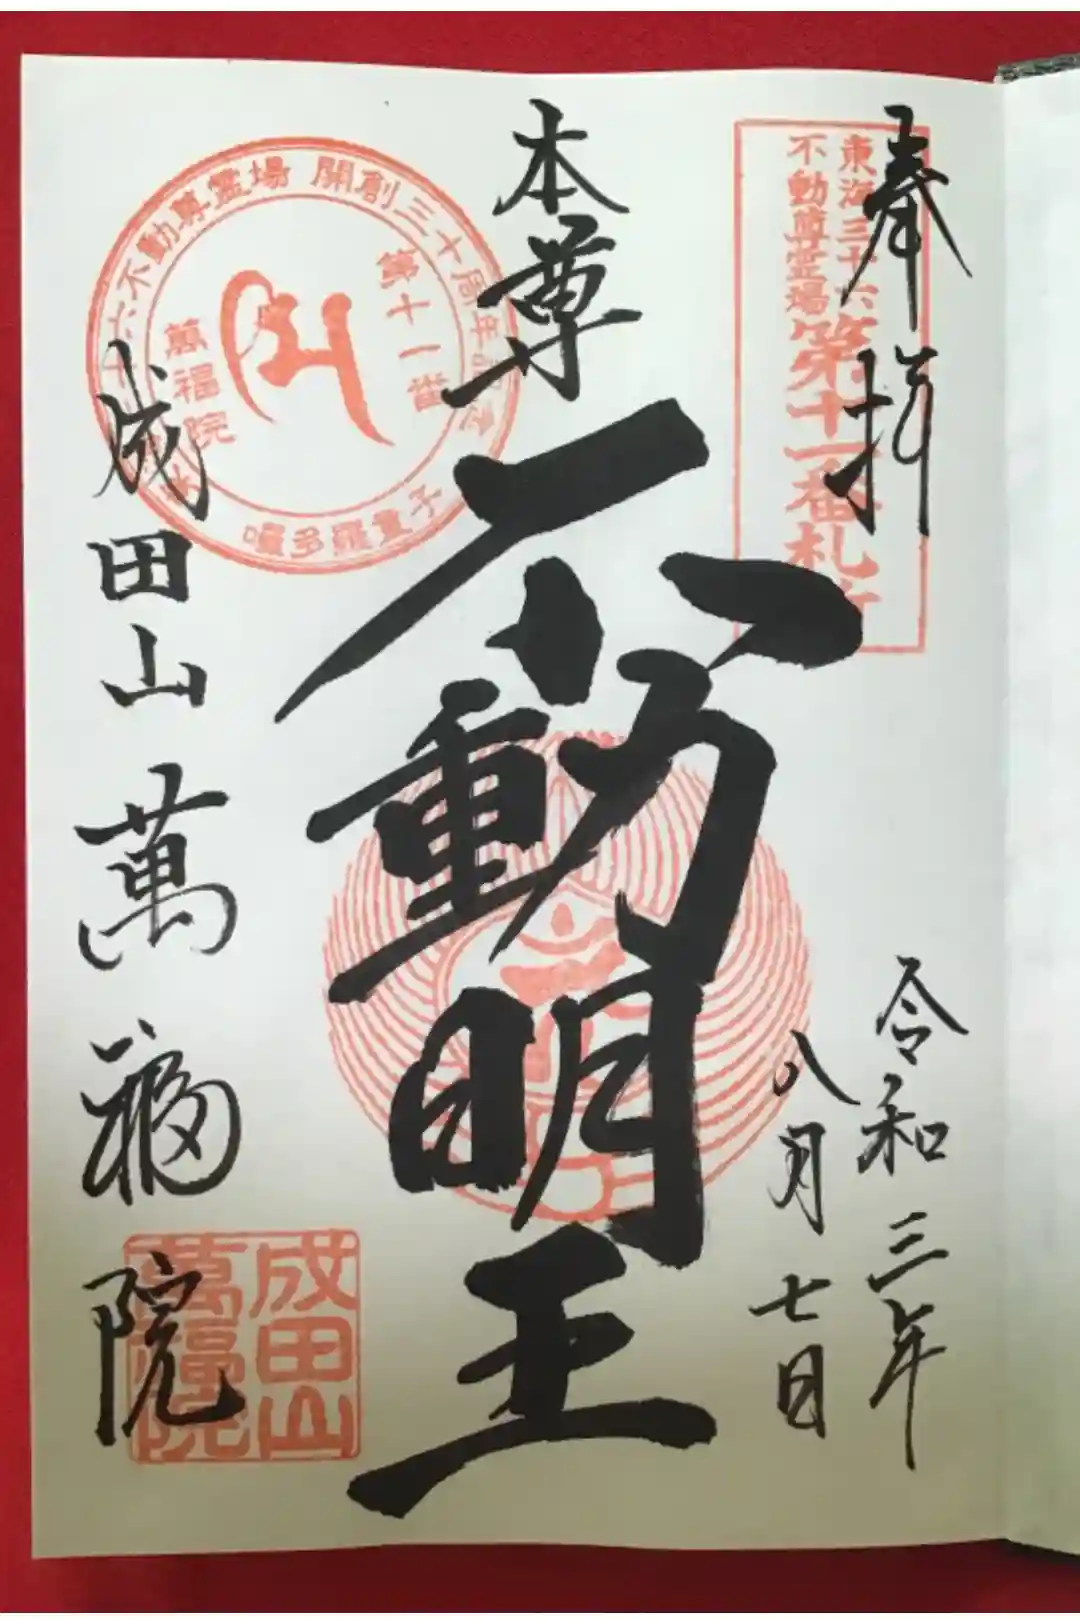 奉拝
東海三十六
不動尊霊場
第十一番札所
令和三年
八月七日
本尊
不動明王
六不動尊霊場 開創三十周年記念
第十一番
萬福院
嚩多羅童子
成田山萬福院
成田山
萬福院